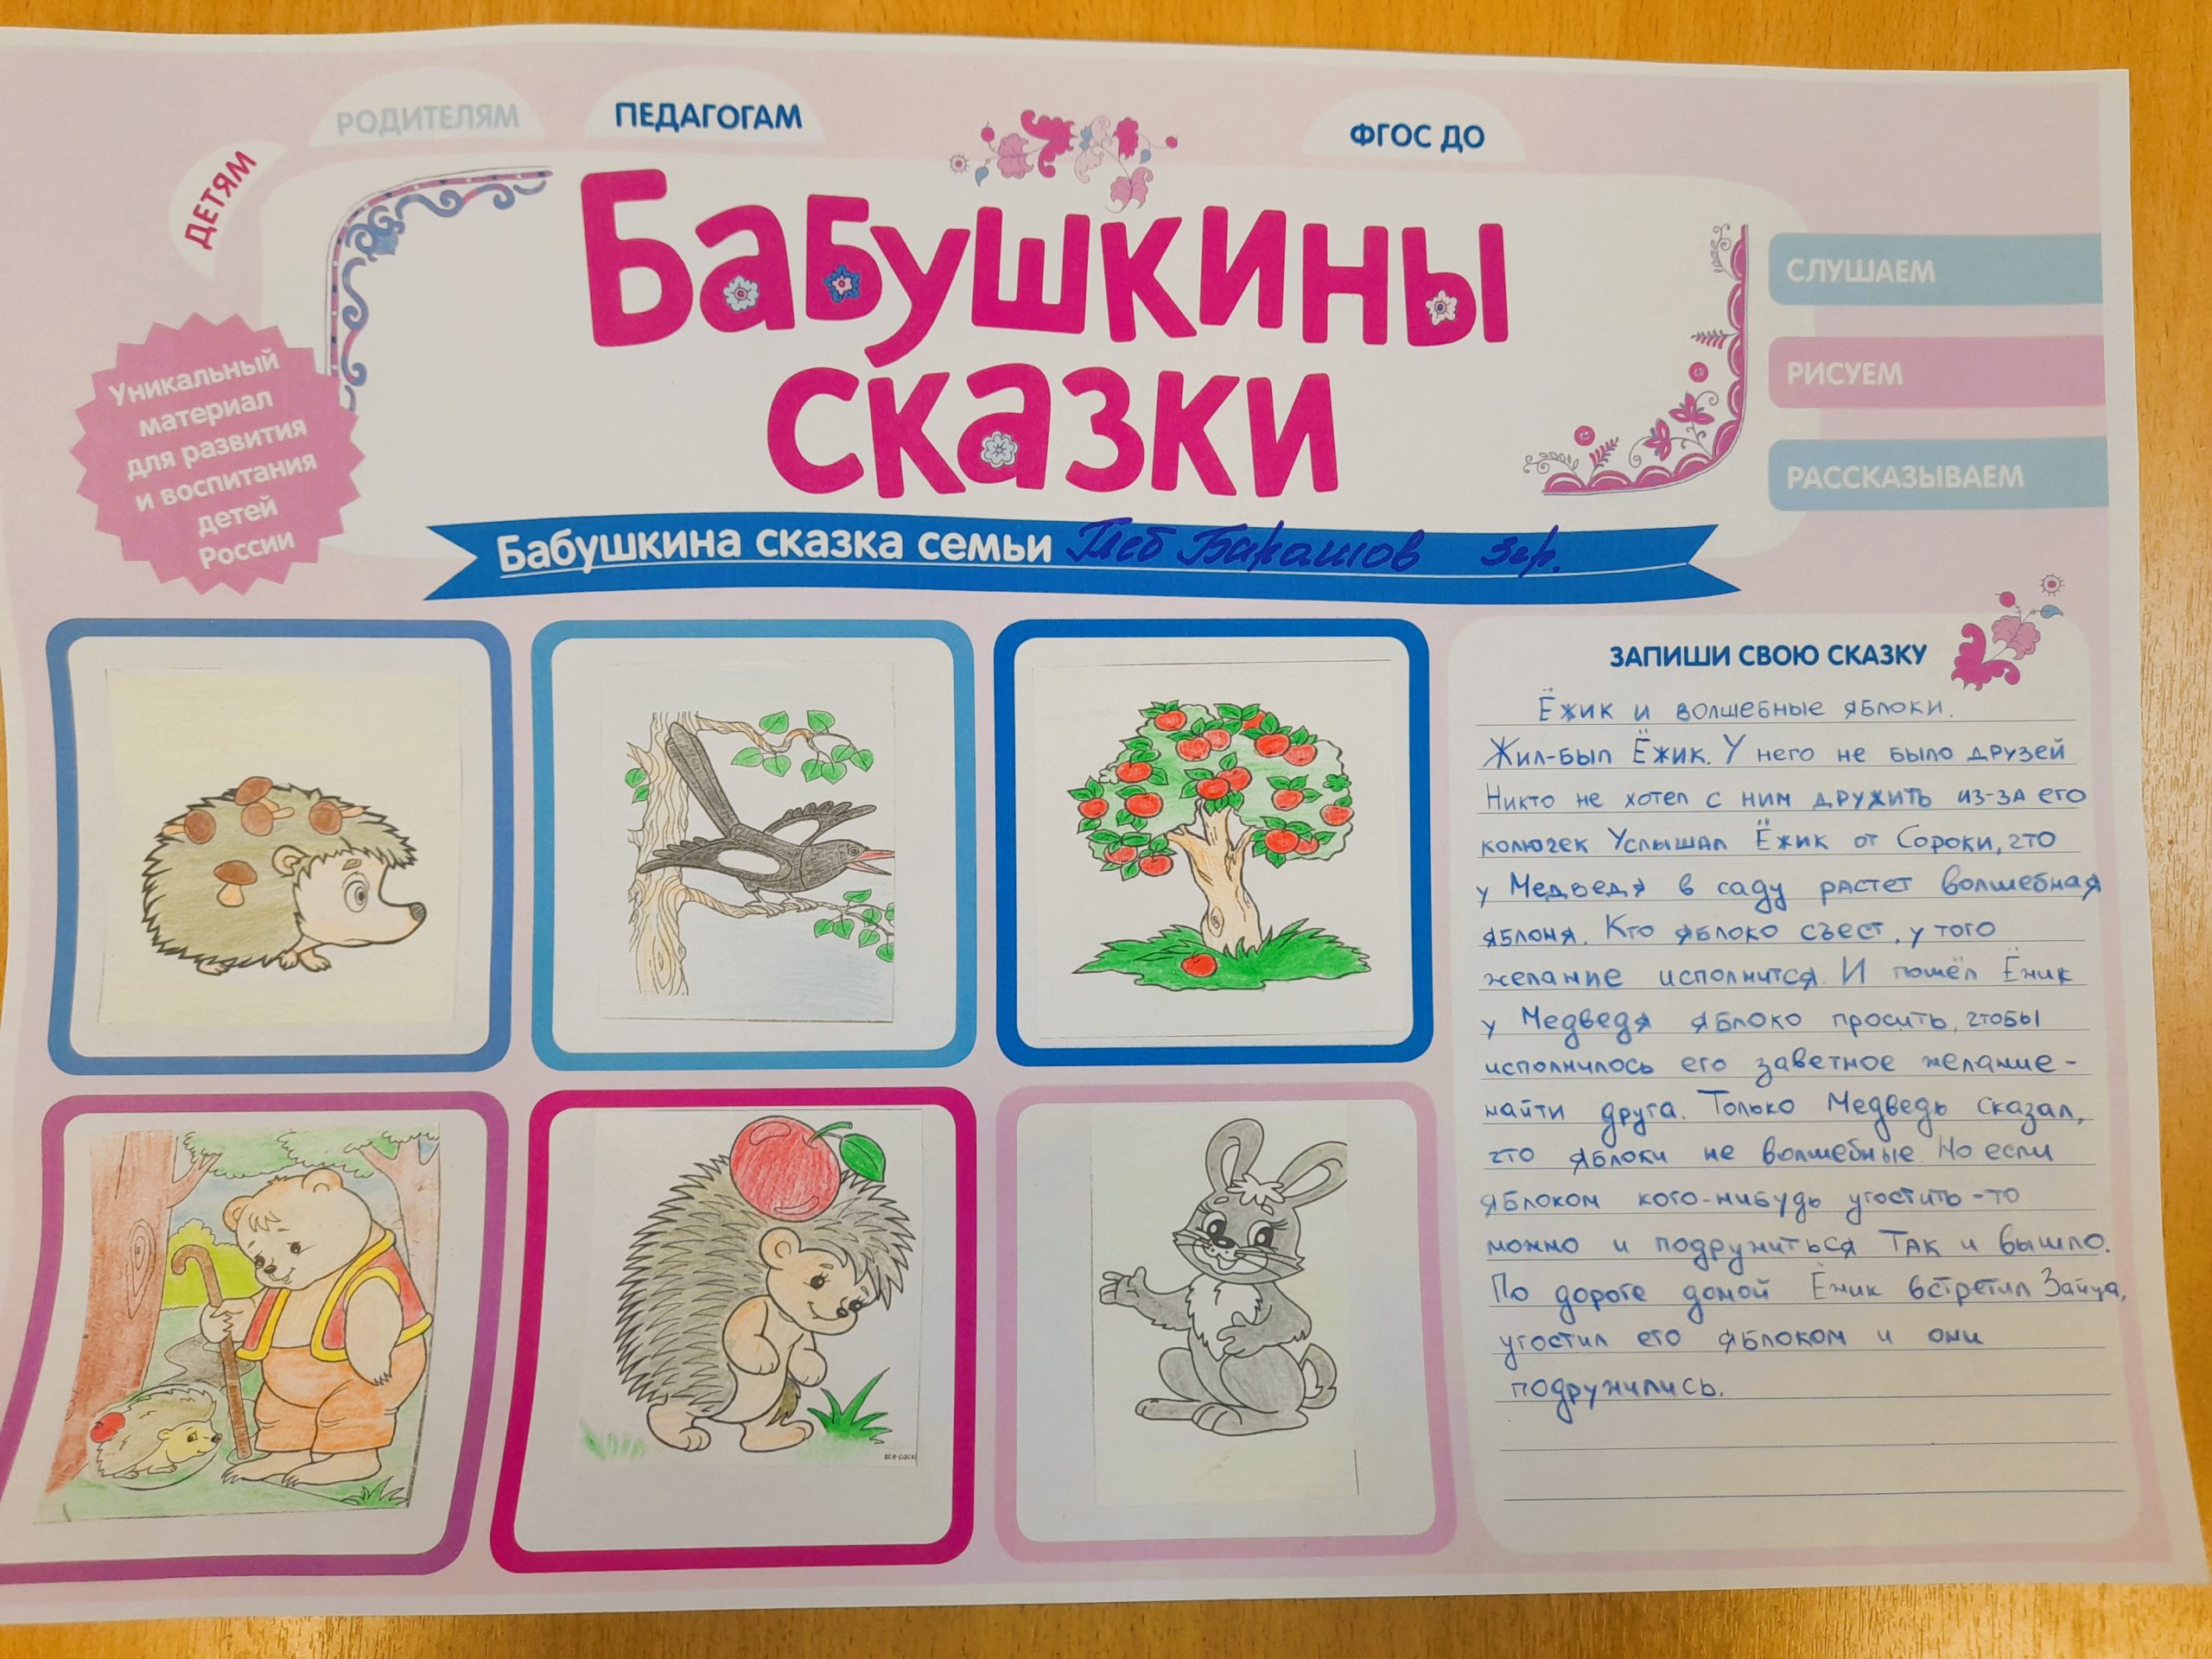 РОДИТЕЛЯМ
ПЕДАГОГАМ
ФГОС ДО
ДЕТЯМ
Бабушкины
сказки
СЛУШАЕМ
РИСУЕМ
РАССКАЗЫВАЕМ
Уникальный
материал
для развития
и воспитания
детей
России
Бабушкина сказка семьи Глеб Барашов 3гр.
ЗАПИШИ СВОЮ СКАЗКУ
Ёжик и волшебные яблоки.
Жил-был Ёжик. У него не было друзей
Никто не хотел с ним дружить из-за его
колючек Услышал Ёжик от Сороки, что
у Медведя в саду растет волшебная
яблоня. Кто яблоко съест, у того
желание исполнится. И пошёл Ёжик
у Медведя яблоко просить, чтобы
исполнилось его заветное желание-
найти друга. Только Медведь сказал,
что яблоки не волшебные. Но если
яблоком кого-нибудь угостить-то
можно и подружиться Так и вышло.
По дороге домой Ёжик встретил Зайца,
угостил его яблоком и они
подружились.
все-раск